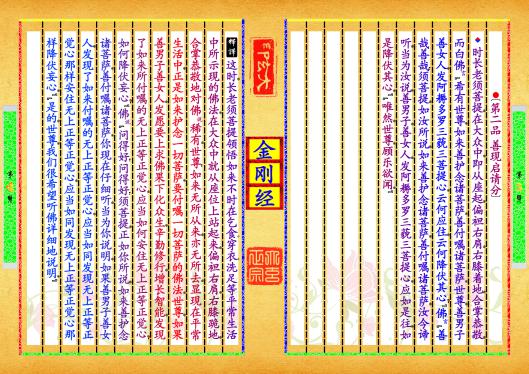 第二品 善现启请分
时长老须菩提在大众中即从座起偏袒右肩右膝着地合掌恭敬
而白佛希有世尊如来善护念诸菩萨善付嘱诸菩萨世尊善男子
善女人发阿耨多罗三藐三菩提心云何应住云何降伏其心佛善
哉善哉须菩提如汝所说如来善护念诸菩萨善付嘱诸菩萨汝今谛
听当为汝说善男子善女人发阿耨多罗三藐三菩提心应如是住如
是降伏其心唯然世尊愿乐欲闻
金刚经
释译
这时长老须菩提领悟如来不时在乞食穿衣洗足等平常生活
中所示现的佛法在大众中就从座位上站起来偏袒右肩右膝跪地
合掌恭敬地对佛稀有世尊如来无所从来亦无所去显现在平常
生活中正是如来护念一切菩萨要付嘱一切菩萨的佛法世尊如果
善男子善女人发愿要上求佛果下化众生辛勤修行增长智能发现
了如来所付嘱的无上正等正觉心应当如何安住无上正等正觉心
如何降伏妄心佛问得好问得好须菩提正如你所说如来善护念
诸菩萨善付嘱诸菩萨你现在仔细听当为你说明如果善男子善女
人发现了如来付嘱的无上正等正觉心应当如同发现无上正等正
觉心那样安住无上正等正觉心应当如同发现无上正等正觉心那
样降伏妄心是的世尊我们很希望听佛详细地说明